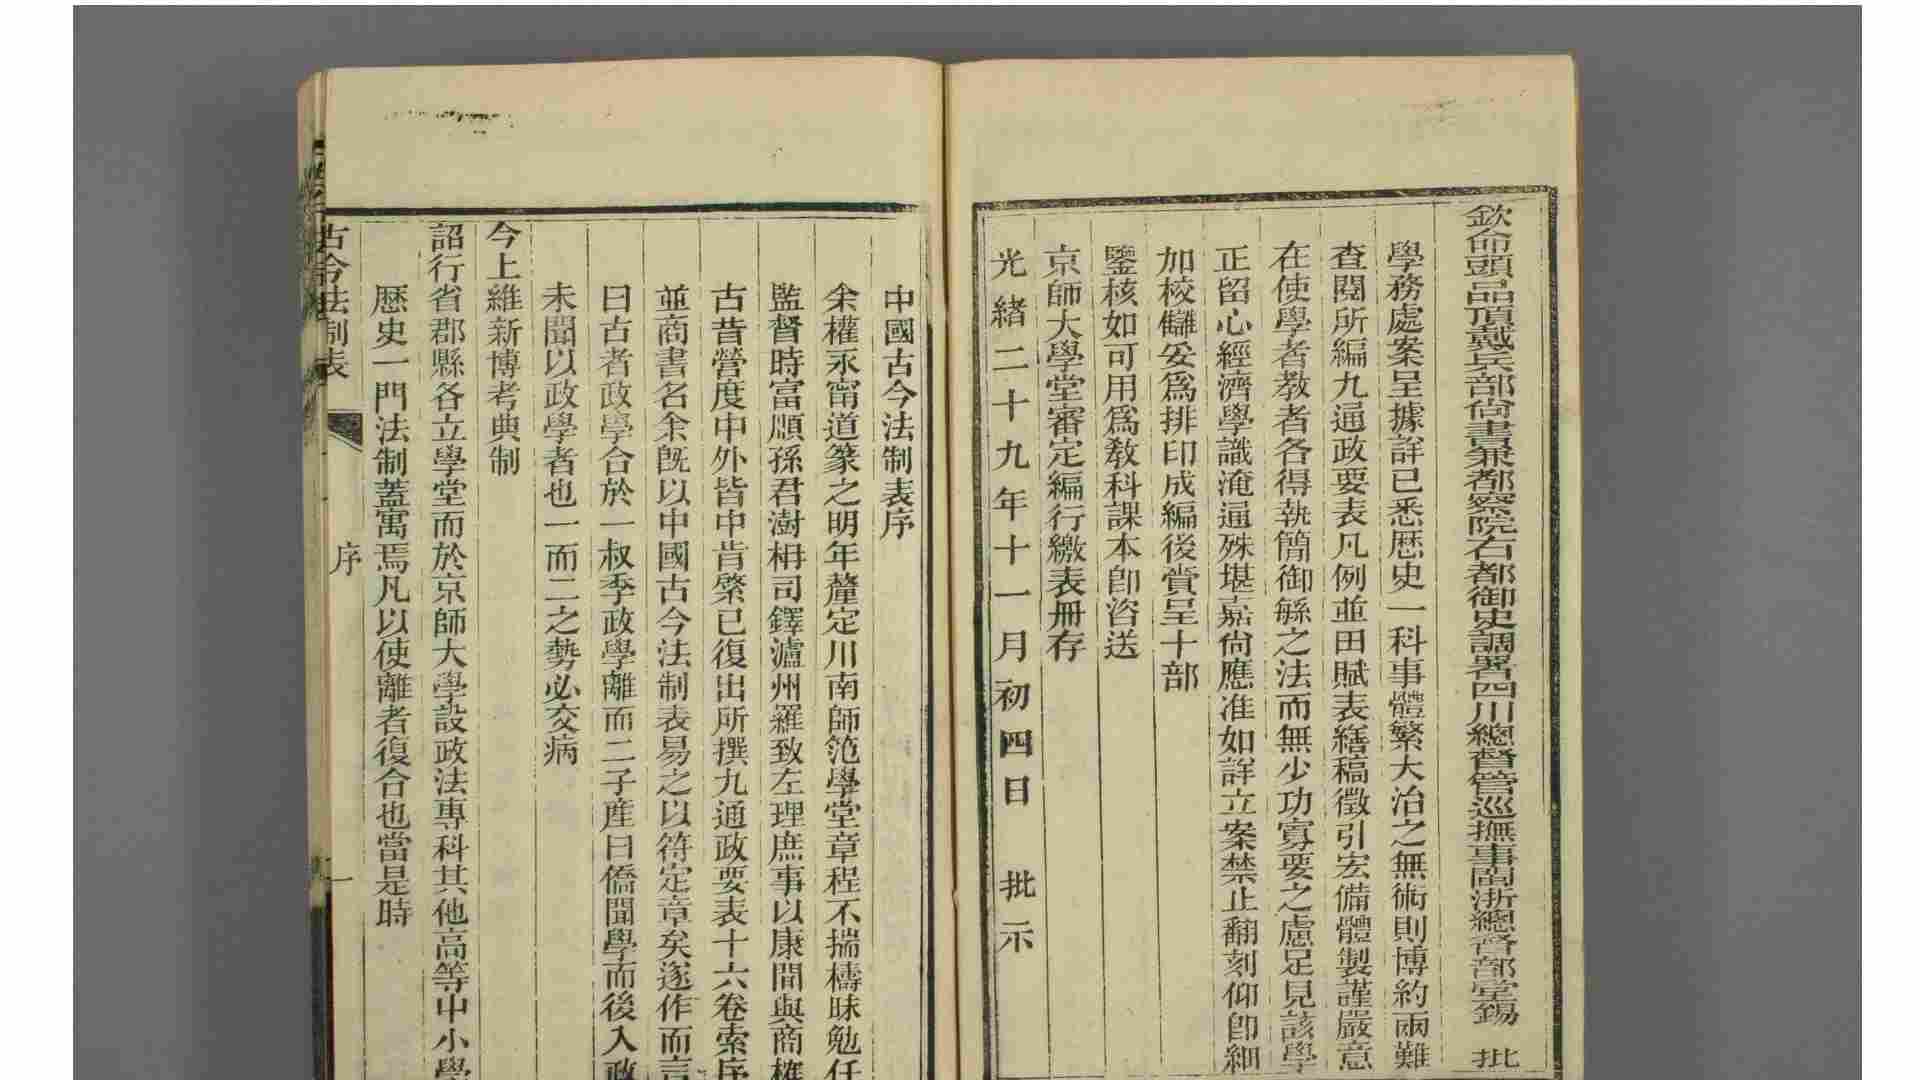 欽命頭品頂戴兵部尙書兼都察院右都御史調署四川總督管巡撫事閩浙總督部堂錫 批
學務處案呈據詳已悉歷史一科事體繁大治之無術則博約兩難
查閱所編九通政要表凡例並田賦表繕稿徵引宏備體製謹嚴意
在使學者敎者各得執簡御緐之法而無少功寡要之慮足見該學
正留心經濟學識淹通殊堪嘉尙應准如詳立案禁止翻刻仰卽細
加校讎妥爲排印成編後賫呈十部
鑒核如可用爲敎科課本卽咨送
京師大學堂審定編行繳表冊存
光緒二十九年十一月初四日 批示
中國古今法制表序
余權永甯道篆之明年釐定川南師範學堂章程不揣檮昧勉任
監督時富順孫君澍枏司鐸瀘州羅致左理庶事以康間與商榷
古昔營度中外皆中肯綮已復出所撰九通政要表十六卷索序
並商書名余旣以中國古今法制表易之以符定章矣遂作而言
曰古者政學合於一叔季政學離而二子產曰僑聞學而後入政
未聞以政學者也一而二之勢必交病
今上維新博考典制
詔行省郡縣各立學堂而於京師大學設政法專科其他高等中小學
歷史一門法制蓋寓焉凡以使離者復合也當是時
古今法制表 序 一